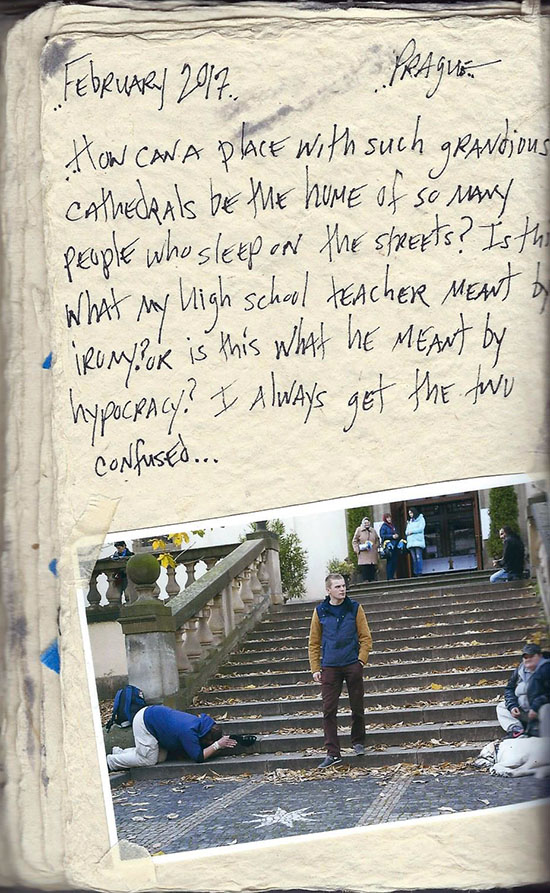 ..February 2017.. ..Prague..
..How can a place with such grandious
cathedrals be the home of so many
people who sleep on the streets? Is this
what my high school teacher meant by
irony? or is this what he meant by
hypocracy? I always get the two
confused...